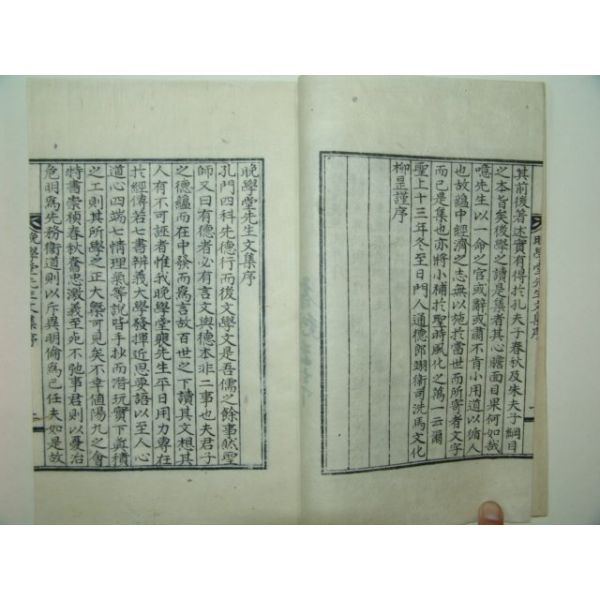 晚學堂先生文集序
其前後著述實有得於孔夫子春秋及朱夫子綱目
之本旨矣後學之讀是集者其心膽面目果何如哉
噫先生以一命之官或辭或肅不肯小用道以循人
也故蘊中經濟之志無以施於當世而所寄者文字
而已是集也亦將小補於聖時風化之萬一云爾
聖上十三年冬至日門人通德郎翊衛司洗馬文化
柳昰謹序
晚學堂先生文集序
孔門四科先德行而後文學文是吾儒之餘事然聖
師又曰有德者必有言文與德本非二事也夫君子
之德蘊而在中發而爲言故百世之下讀其文想其
人有不可誣者惟我晚學堂裵先生平日用力專在
於經傳若七書辨義大學發揮近思要語以至人心
道心四端七情理氣等說皆手抄而潛玩實下眞積
之工則其所學之正大槩可見矣不幸値陽九之會
特書崇禎春秋奮忠激義至死不弛事君則以憂治
危明爲先務衛道則以斥異明倫爲己任夫如是故
晚學堂先生文集序